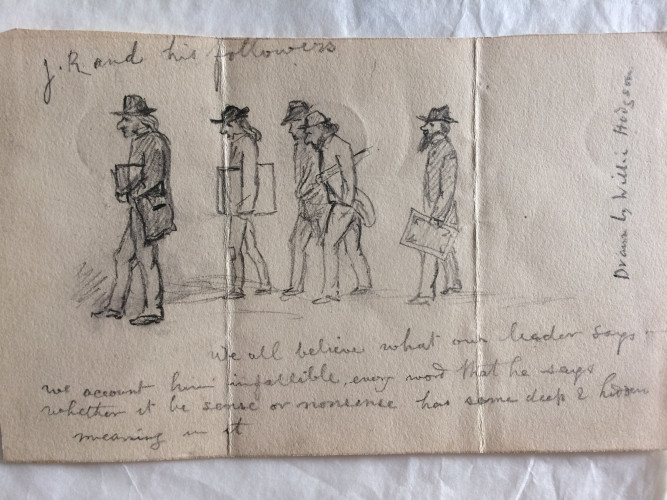 J. R and his followers
Drawn by Willie Hodgson.
We all believe what our leader says
we account him infallible, every word that he says
whether it be sense or nonsense has some deep & hidden
meaning in it